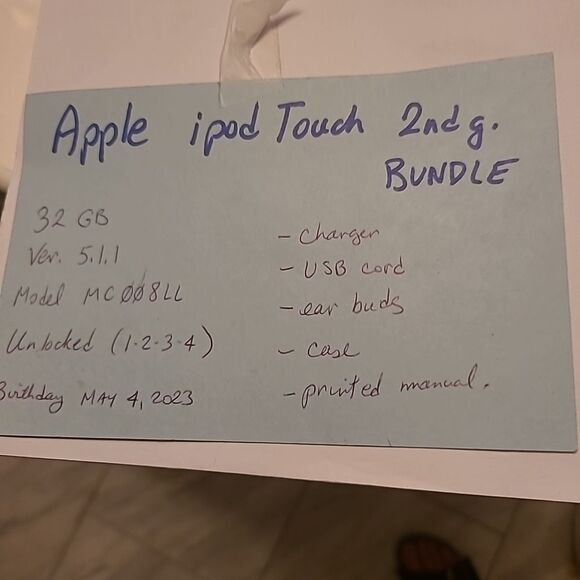 Apple ipod Touch 2nd g.
BUNDLE
32 GB
Ver. 5.1.1
Model MC008LL
Unlocked (1-2-3-4)
Birthday MAY 4, 2023
- Charger
- USB cord
- ear buds
- case
- printed manual.